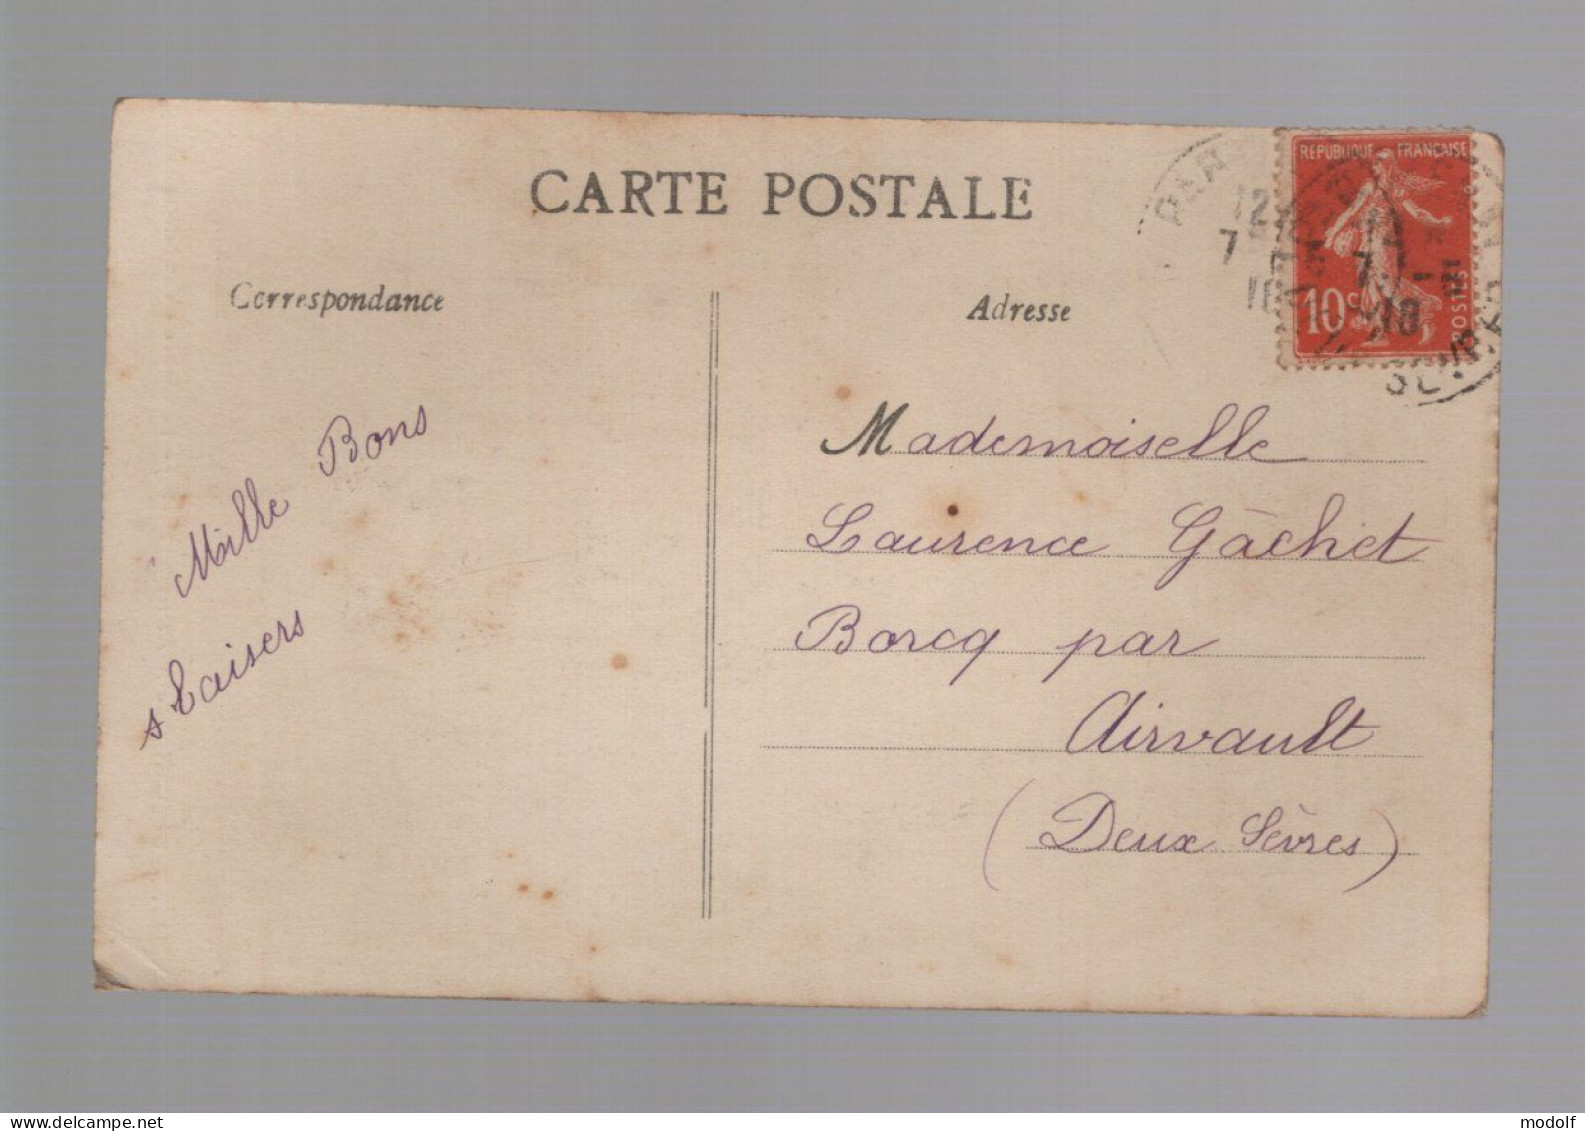 CARTE POSTALE
Correspondance
Adresse
REPUBLIQUE FRANÇAISE
10c
POSTES
Mille Bons
baisers
Mademoiselle
Laurence Gâchet
Borcq par
Airvault
(Deux Sèvres)
www.delcampe.net
modolf